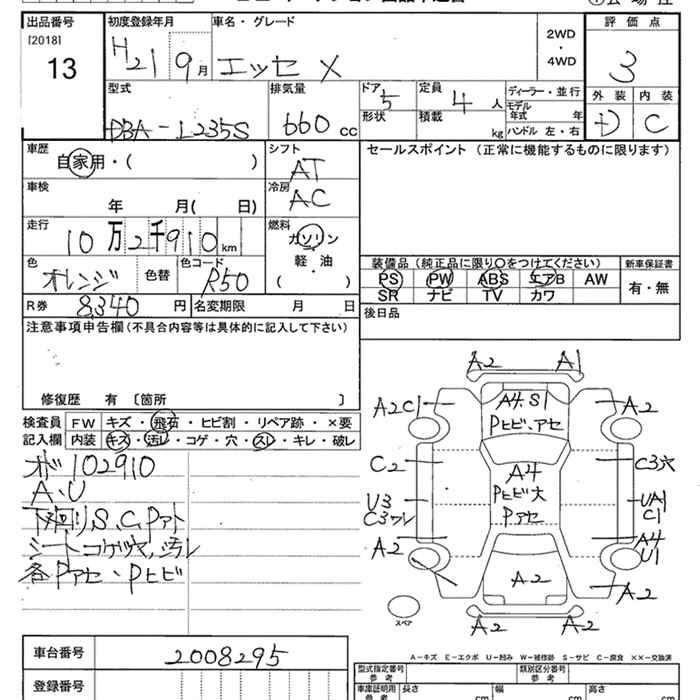 出品番号 初度登録年月 車名・グレード 評価点
[2018]
13 H21 9月 エッセ X 2WD・4WD 3
外装 内装
D C
型式 排気量 ドア 定員 ディーラー・並行
DBA-L235S 660cc 5 4人 モデル年式 年
形状 積載 kg ハンドル 左・右
車歴 シフト セールスポイント (正常に機能するものに限ります)
自家用・( ) AT
車検 冷房
年 月( 日) AC
走行 燃料
10万2千910km ガソリン
軽・油
( )
色 色替 色コード
オレンジ R50
装備品 (純正品に限り○をつけてください) 新車保証書
PS PW ABS エアB AW 有・無
SR ナビ TV カワ
R券 8,340円 名変期限 月 日 後日品
注意事項申告欄 (不具合内容等は具体的に記入して下さい)
修復歴 有 〔箇所 〕
検査員 FW キズ・飛石・ヒビ割・リペア跡・×要
記入欄 内装 キズ・汚レ・コゲ・穴・スレ・キレ・破レ
102910
A、U
下廻りS、C、Pアト
シートコゲ、汚レ
各Pアセ、Pヒビ
A2 A1
A2C1 A4.S1 A2
Pヒビ、アセ
C2 A4 C3穴
U3 Pヒビ大 UA1
C3ワレ Pアセ C1
A2 A4
U1
A2 A2
A2 A2
スペア
A－キズ E－エクボ U－凹み W－補修跡 S－サビ C－腐食 ××－交換済
車台番号 2008295
登録番号
型式指定番号 参考 類別区分番号 参考
車庫証明用 参考 長さ cm 幅 cm 高さ cm